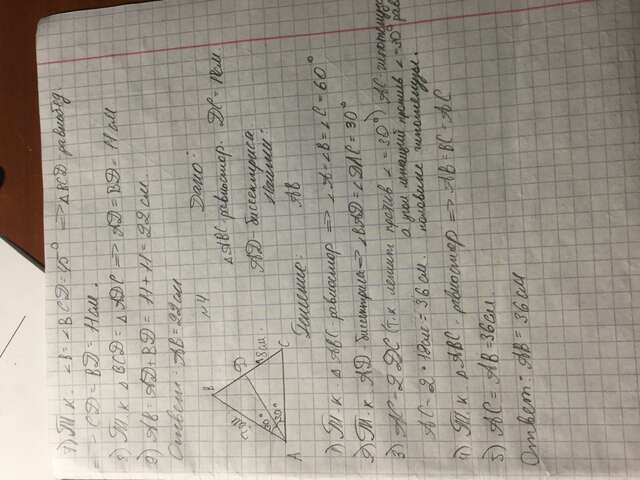 7) Т.к. ∠B=∠BCD=45° => △BCD-равнобед.
=> CD=BD=11см.
8) Т.к △BCD=△ADC => AD=BD=11см
9) AB=AD+BD=11+11=22см.
Ответ: AB=22см
№4
Дано:
△ABC равностор. DC=18см
AD биссектриса
Найти:
AB
B
D
18см.
30°
30°
A
C
Решение:
1) Т.к △ABC-равностор => ∠A=∠B=∠C=60°
2) Т.к. AD биссектриса => ∠BAD=∠DAC=30°
3) AC=2DC (т.к лежит против ∠=30°) AC-гипотенуза
а угол лежащий против ∠=30° рав
AC=2·18см=36см. половине гипотенузы.
4) Т.к △ABC-равностор => AB=BC=AC
5) AC=AB=36см.
Ответ: AB=36см